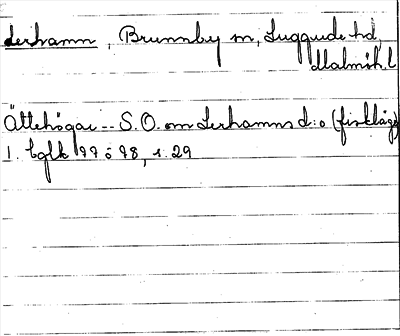 Lerhamn, Brunnby sn, Luggude hd,
Malmöh. l
Ättehögar -- S.O. om Lerhamns d:o (fiskläge)
1. bglk 97 o 98, s. 29